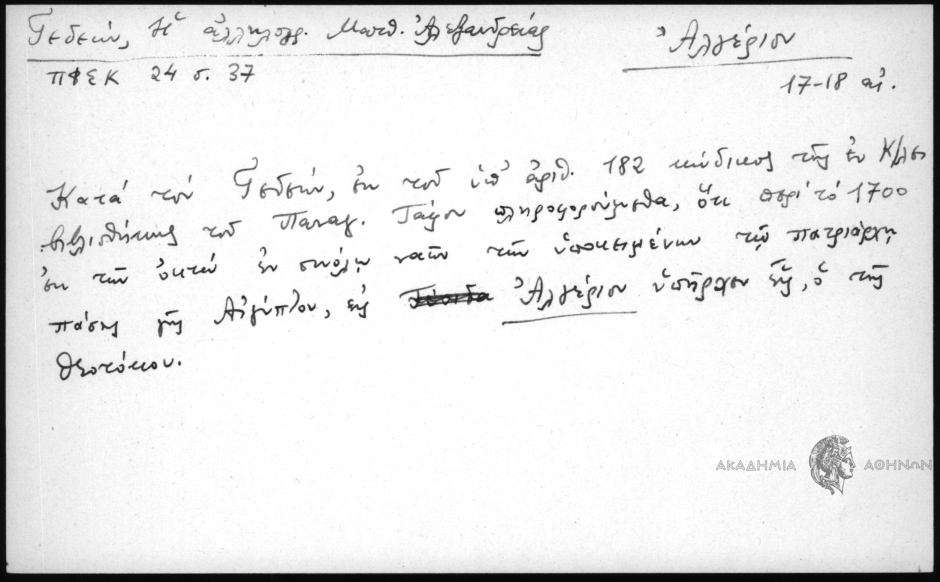 Γεδεών, Ἡ ἀλληλογρ. Ματθ. Ἀλεξανδρείας
Ἀλγέριον
ΠΦΣΚ 24 σ. 37
17-18 αἰ.
Κατά τόν Γεδεών, ἐκ τοῦ ὑπ' ἀριθ. 182 κώδικος τῆς ἐν Κ/λει
βιβλιοθήκης τοῦ Παναγ. Τάφου πληροφορούμεθα, ὅτι περί τό 1700
ἐκ τῶν ὀκτώ ἐν συνόλῳ ναῶν τῶν ὑποκειμένων τῷ πατριάρχῃ
πάσης γῆς Αἰγύπτου, εἰς Ἀλγέριον ὑπῆρχεν εἷς, ὁ τῆς
Θεοτόκου.
ΑΚΑΔΗΜΙΑ ΑΘΗΝΩΝ